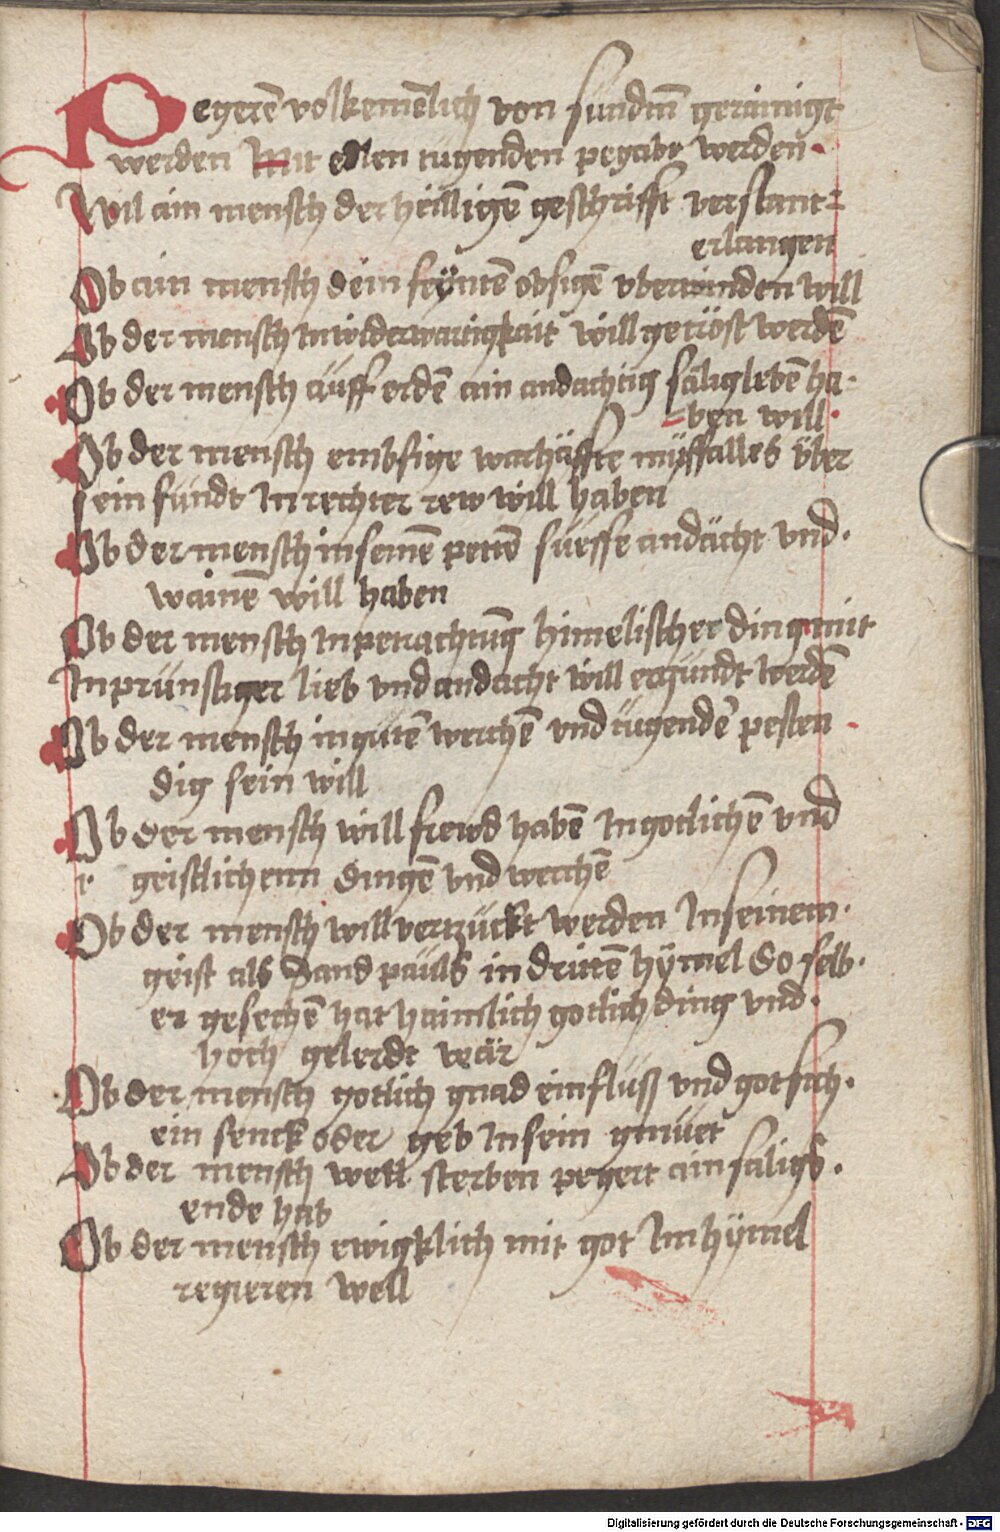 Pegerē volkemēlich von sundnn̄ gerainigt
werden Mit ellen tugenden pegabt werden.
Wil ain mensch der heilligē geschrifft verstant
erlangen
Ob ain mensch dein feyntē obsigē vberwinden will
Ob der mensch in widerwartigkait will getröst werdē
Ob der mensch auff erdē ain andachtig sälig lebē ha-
ben will.
Ob der mensch embsige warhaffte über
sein sündt In rechter rew will haben
Ob der mensch in seinē petē süesse andächt vnd.
wainē will haben
Ob der mensch In petrachtūg himelischer ding mit
Inprünstiger lieb vnd andacht will enzündt werdē
Ob der mensch in gutē werchē vnd tugendē pesten
dig sein will
Ob der mensch will frewd habē In gotlichē vnd
geistlichenn dingē vnd werchē
Ob der mensch will verzückt werden In seinem.
geist als Sand paüls in dritē hymel do selb.
er gesechē hat haimlich gotlich ding vnd.
hoch gelerdt wär
Ob der mensch gotlich gnad einfluß vnd got sich.
ein senck oder geb In sein gmüet
Ob der mensch well sterben pegert ain säligs.
ende hab
Ob der mensch ewigklich mit got Im hymel
regieren well
Digitalisierung gefördert durch die Deutsche Forschungsgemeinschaft - DFG